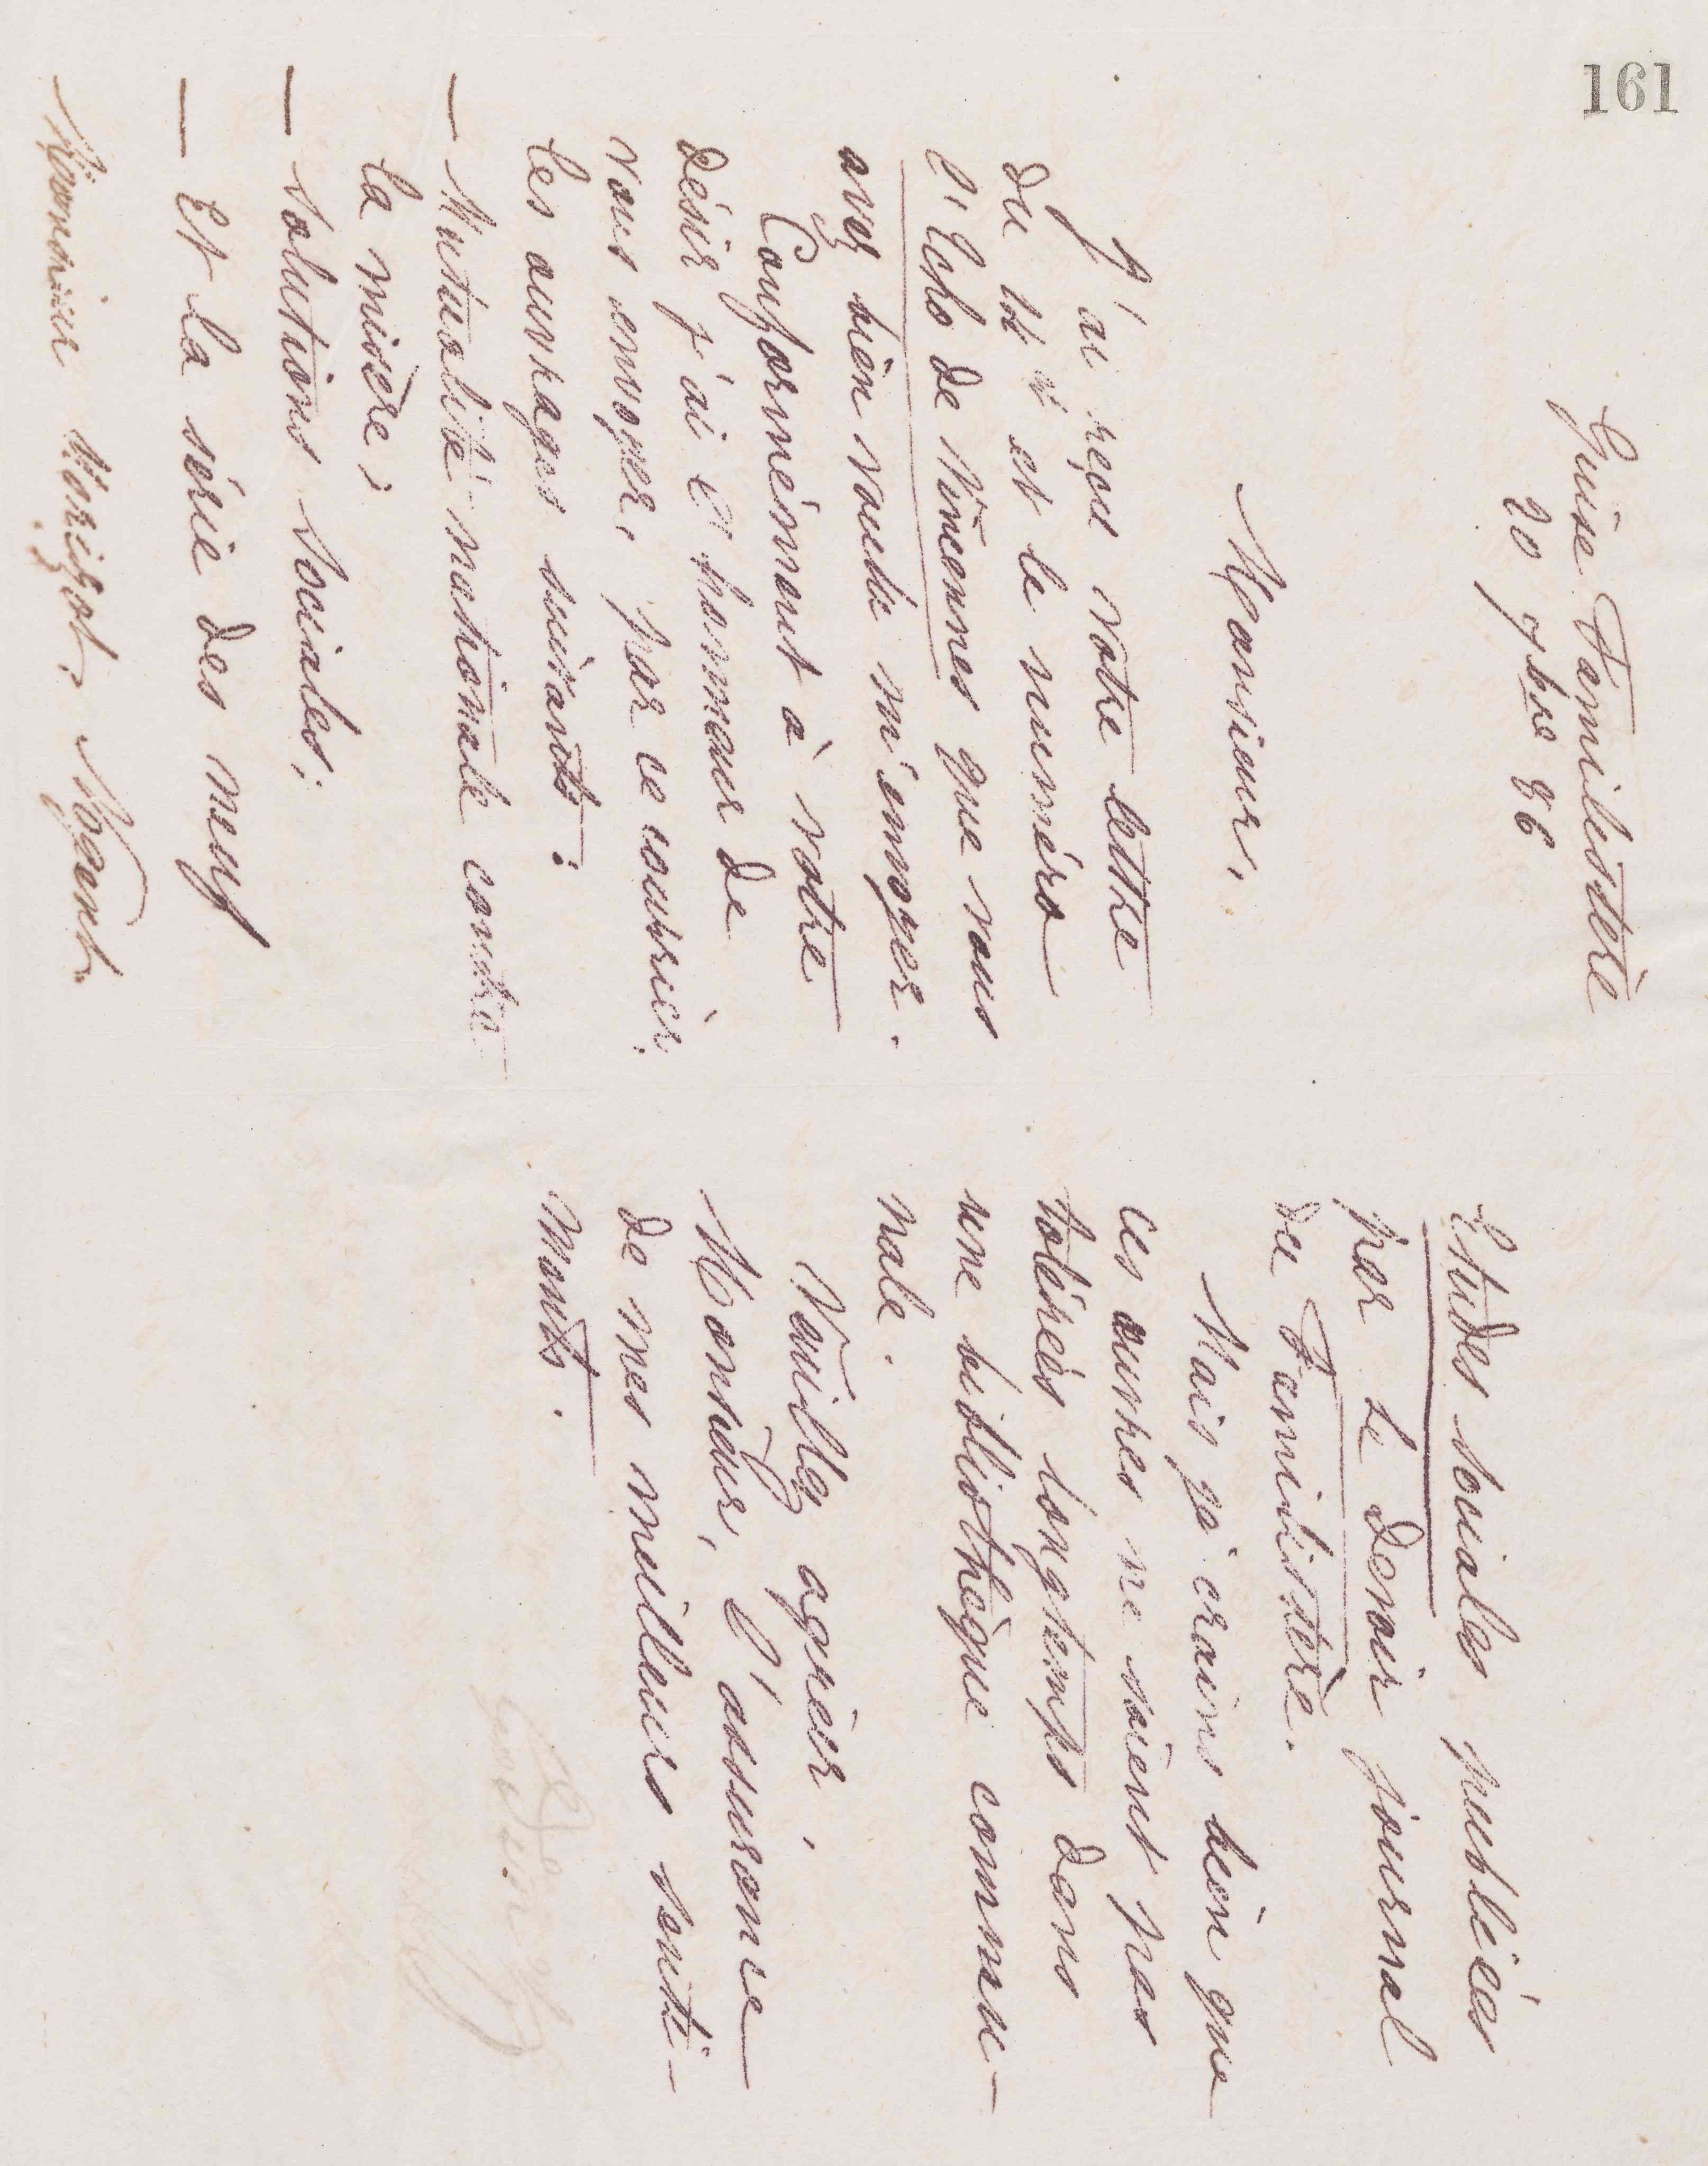 161
Guise Familistère
20 9bre 86
Monsieur,
J'ai reçu votre lettre
du 18 et et le numéro
l'Echo de Vincennes que vous
avez bien voulu m'envoyer.
Conformément à votre
désir j'ai l'honneur de
vous envoyer, par ce courrier,
les ouvrages suivants :
— Mutualité nationale contre
la misère;
— Solutions sociales;
— Et la série des neuf
Monsieur Morizot. Nogent.
Etudes sociales publiées
par Le Devoir journal
du Familistère.
Mais je crains bien que
ces œuvres ne soient pas
tolérées longtemps dans
une bibliothèque commu-
nale.
Veuillez agréer,
Monsieur, l'assurance
de mes meilleurs senti-
ments.
Godin